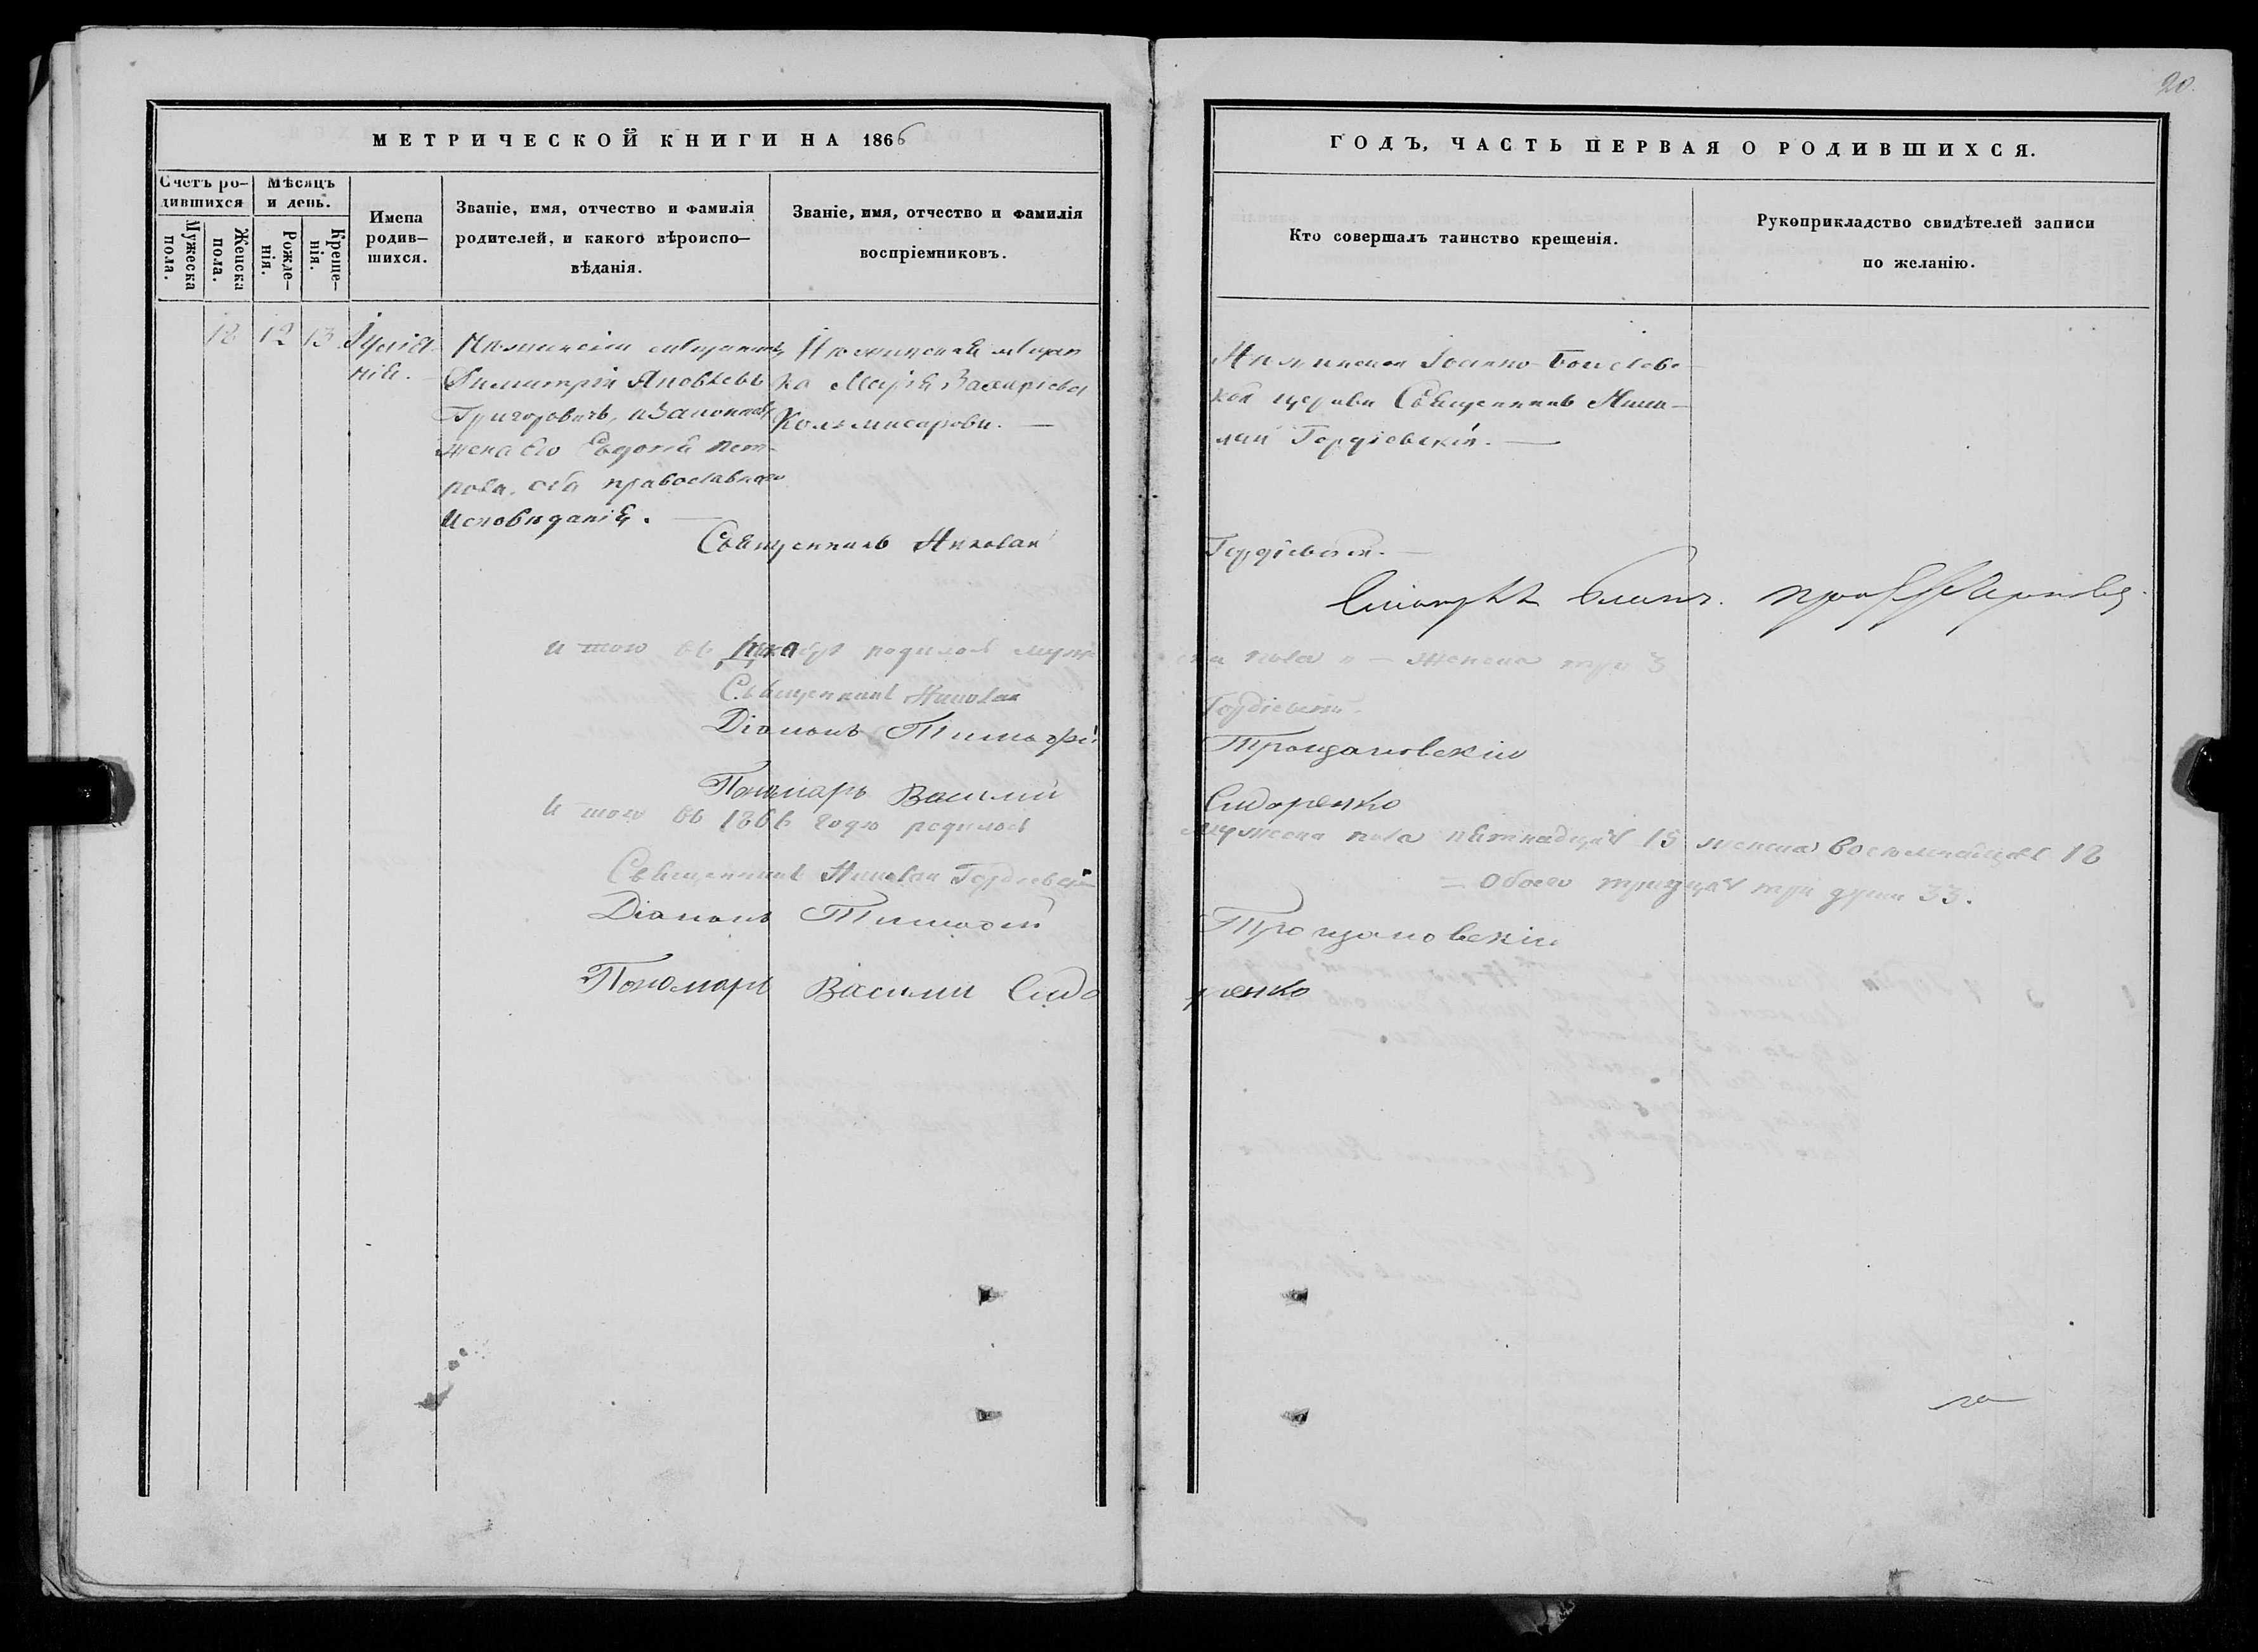 20.
МЕТРИЧЕСКОЙ КНИГИ НА 1866
ГОДЪ, ЧАСТЬ ПЕРВАЯ О РОДИВШИХСЯ.
Счетъ ро-
дившихся
Мужеска
пола.
Женска
пола.
Мѣсяцъ
и день.
Рожде-
нія.
Креще-
нія.
Имена
родив-
шихся.
Званіе, имя, отчество и фамилія
родителей, и какого вѣроиспо-
вѣданія.
Званіе, имя, отчество и фамилія
воспріемниковъ.
Кто совершалъ таинство крещенія.
Рукоприкладство свидѣтелей записи
по желанію.
18 12 13
Іуліа-
нія.
Нѣжинскій мѣщанинъ
Димитрій Яковлевъ
Григоровичъ, и законная
жена его Евдокія Пет-
рова, оба православнаго
исповѣданія.
Нѣжинская мѣщан
ка Марія Захаріева
Коммисарова.
Нѣжинской Іоанно-Богослов-
ской церкви Священникъ Нико-
лай Гордіевскій.
Священникъ Николай Гордіевскій.
Итого въ Декабрѣ родилось муже
ска пола " — женска три 3
Священникъ Николай Гордіевскій
Діаконъ Тимофей Трощановскій
Пономарь Василий Сидоренко
Итого въ 1866 году родилось мужеска пола пятнадцать 15 женска восемнадцать 18
= Обоего тридцать три души 33.
Священникъ Николай Гордіевскій
Діаконъ Тимофей Трощановскій
Пономарь Василий Сидоренко